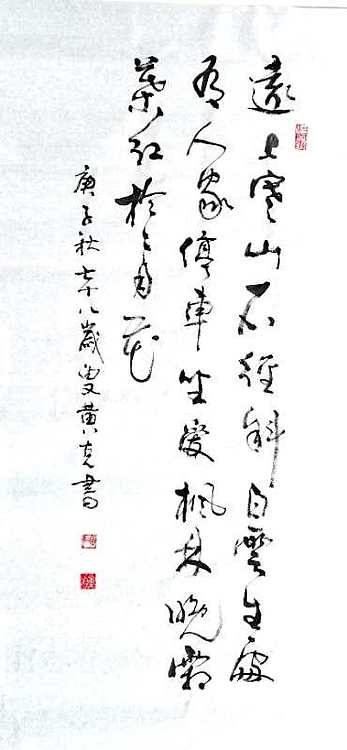 遠上寒山石徑斜白雲生處
有人家停車坐愛楓林晚霜
葉紅於二月花
庚子秋七十八歲叟黄克書